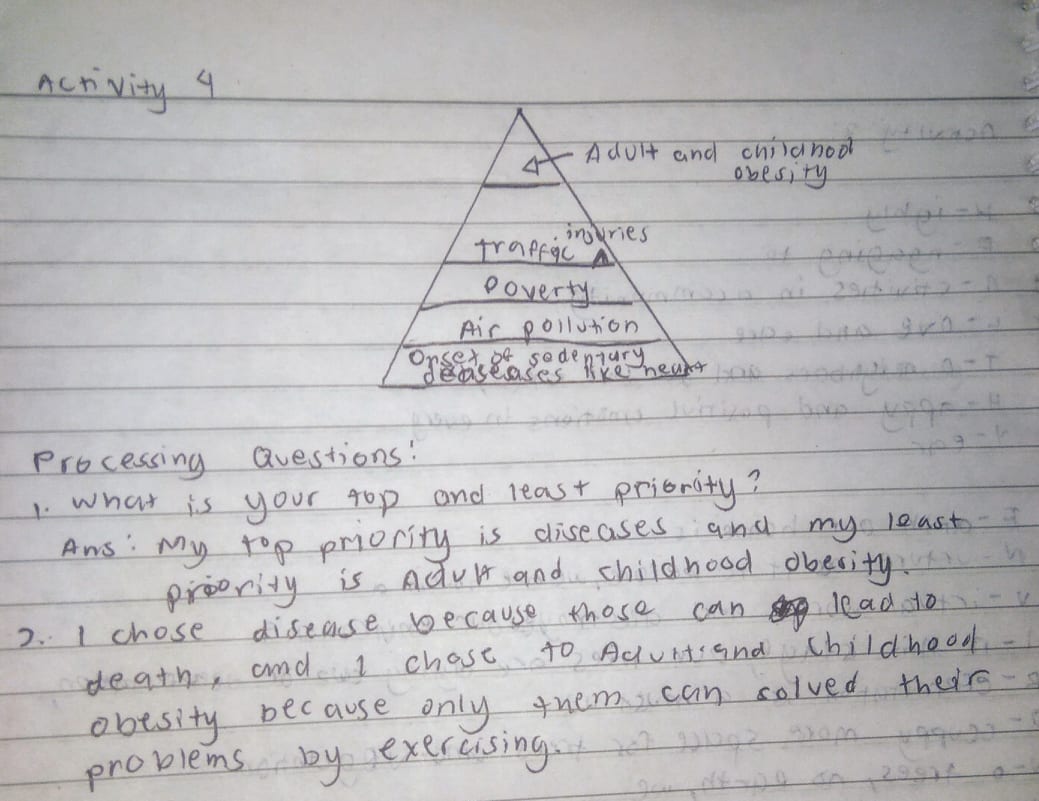 Activity 4
Adult and childhood
obesity
injuries
traffic
Poverty
Air pollution
Onset of sedentary
deaseases like heart
Processing Questions:
1. What is your top and least priority?
Ans: My top priority is diseases and my least
priority is Adult and childhood obesity.
2. I chose disease because those can lead to
death, and I chose to Adult and Childhood
obesity because only them can solved their
problems by exercising.